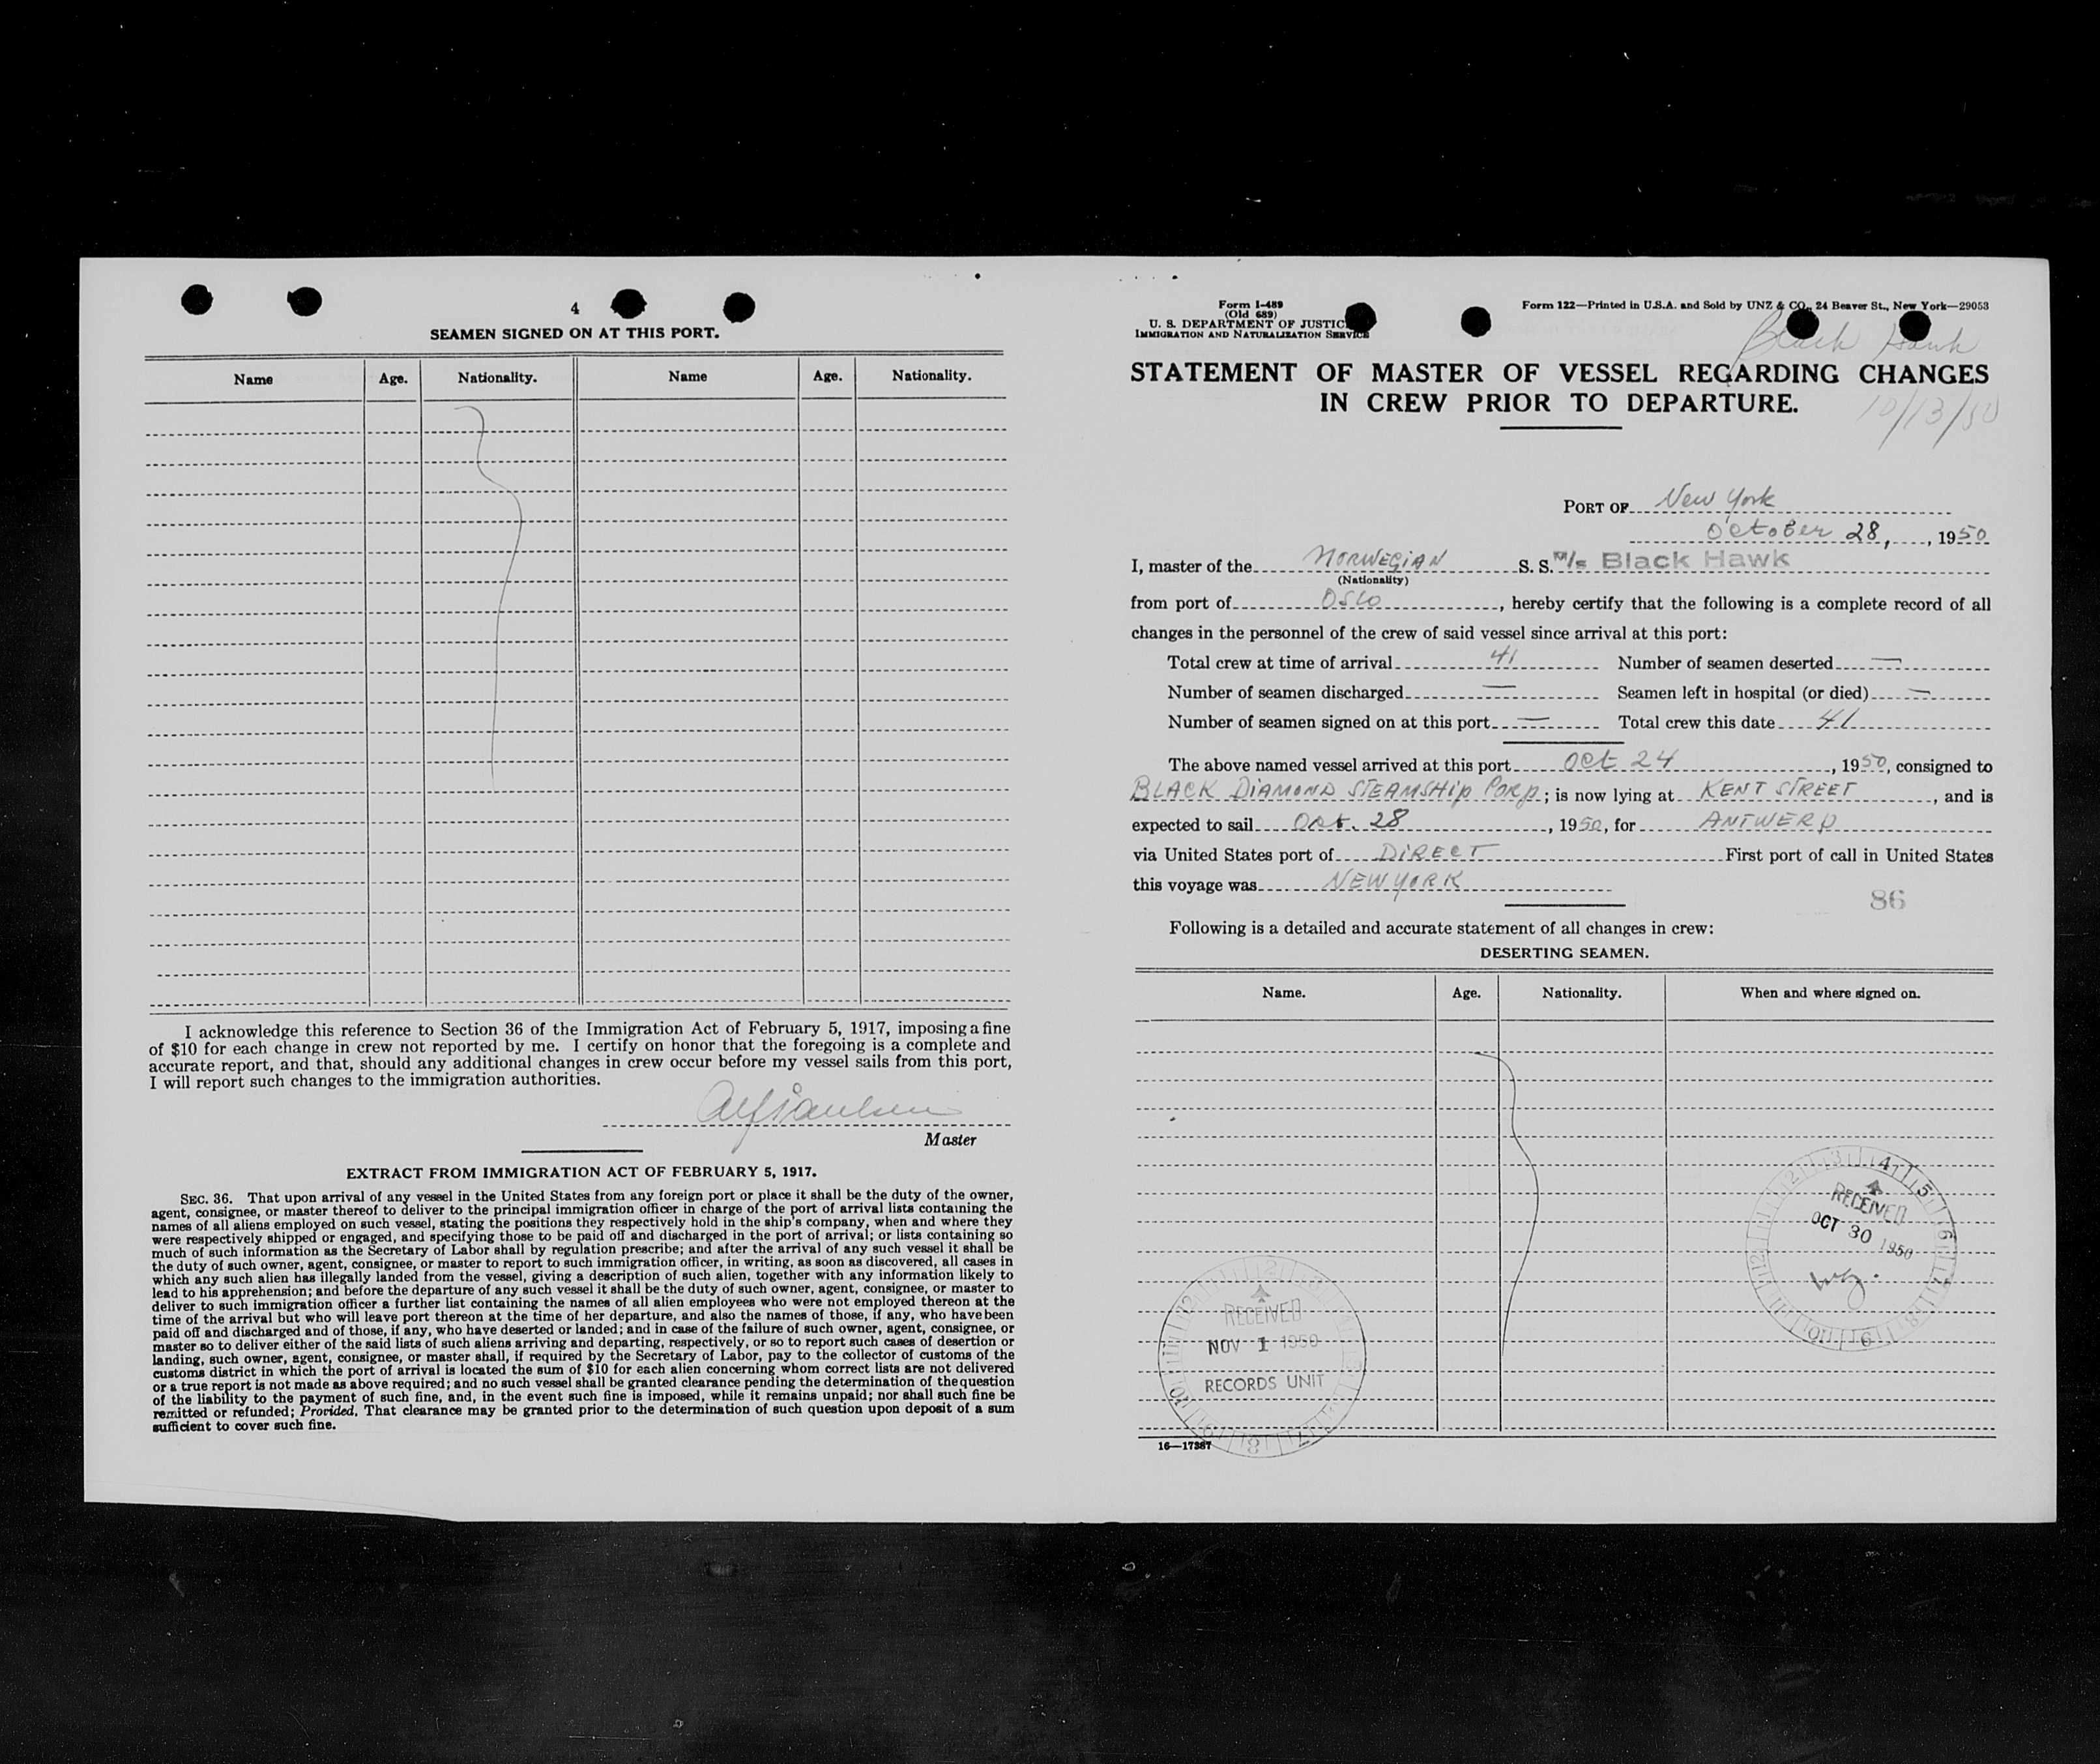 4
SEAMEN SIGNED ON AT THIS PORT.
Name Age. Nationality. Name Age. Nationality.
I acknowledge this reference to Section 36 of the Immigration Act of February 5, 1917, imposing a fine
of $10 for each change in crew not reported by me. I certify on honor that the foregoing is a complete and
accurate report, and that, should any additional changes in crew occur before my vessel sails from this port,
I will report such changes to the immigration authorities.
Master
EXTRACT FROM IMMIGRATION ACT OF FEBRUARY 5, 1917.
SEC. 36. That upon arrival of any vessel in the United States from any foreign port or place it shall be the duty of the owner,
agent, consignee, or master thereof to deliver to the principal immigration officer in charge of the port of arrival lists containing the
names of all aliens employed on such vessel, stating the positions they respectively hold in the ship's company, when and where they
were respectively shipped or engaged, and specifying those to be paid off and discharged in the port of arrival; or lists containing so
much of such information as the Secretary of Labor shall by regulation prescribe; and after the arrival of any such vessel it shall be
the duty of such owner, agent, consignee, or master to report to such immigration officer, in writing, as soon as discovered, all cases in
which any such alien has illegally landed from the vessel, giving a description of such alien, together with any information likely to
lead to his apprehension; and before the departure of any such vessel it shall be the duty of such owner, agent, consignee, or master to
deliver to such immigration officer a further list containing the names of all alien employees who were not employed thereon at the
time of the arrival but who will leave port thereon at the time of her departure, and also the names of those, if any, who have been
paid off and discharged and of those, if any, who have deserted or landed; and in case of the failure of such owner, agent, consignee, or
master so to deliver either of the said lists of such aliens arriving and departing, respectively, or so to report such cases of desertion or
landing, such owner, agent, consignee, or master shall, if required by the Secretary of Labor, pay to the collector of customs of the
customs district in which the port of arrival is located the sum of $10 for each alien concerning whom correct lists are not delivered
or a true report is not made as above required; and no such vessel shall be granted clearance pending the determination of the question
of the liability to the payment of such fine, and, in the event such fine is imposed, while it remains unpaid; nor shall such fine be
remitted or refunded; Provided, That clearance may be granted prior to the determination of such question upon deposit of a sum
sufficient to cover such fine.
Form I-489
(Old 689)
U. S. DEPARTMENT OF JUSTICE
IMMIGRATION AND NATURALIZATION SERVICE
Form 122—Printed in U.S.A. and Sold by UNZ & CO., 24 Beaver St., New York—29053
Black Hawk
STATEMENT OF MASTER OF VESSEL REGARDING CHANGES
IN CREW PRIOR TO DEPARTURE.
10/13/50
PORT OF New York
October 28, , 1950
I, master of the NORWEGIAN S. S. M/S Black Hawk
(Nationality)
from port of OSLO , hereby certify that the following is a complete record of all
changes in the personnel of the crew of said vessel since arrival at this port:
Total crew at time of arrival 41 Number of seamen deserted —
Number of seamen discharged — Seamen left in hospital (or died) —
Number of seamen signed on at this port — Total crew this date 41
The above named vessel arrived at this port Oct 24 , 1950, consigned to
BLACK DIAMOND STEAMSHIP CORP; is now lying at KENT STREET , and is
expected to sail Oct. 28 , 1950, for ANTWERP
via United States port of DIRECT First port of call in United States
this voyage was NEW YORK
86
Following is a detailed and accurate statement of all changes in crew:
DESERTING SEAMEN.
Name. Age. Nationality. When and where signed on.
RECEIVED
OCT 30 1950
RECEIVED
NOV 1 1950
RECORDS UNIT
16—17387